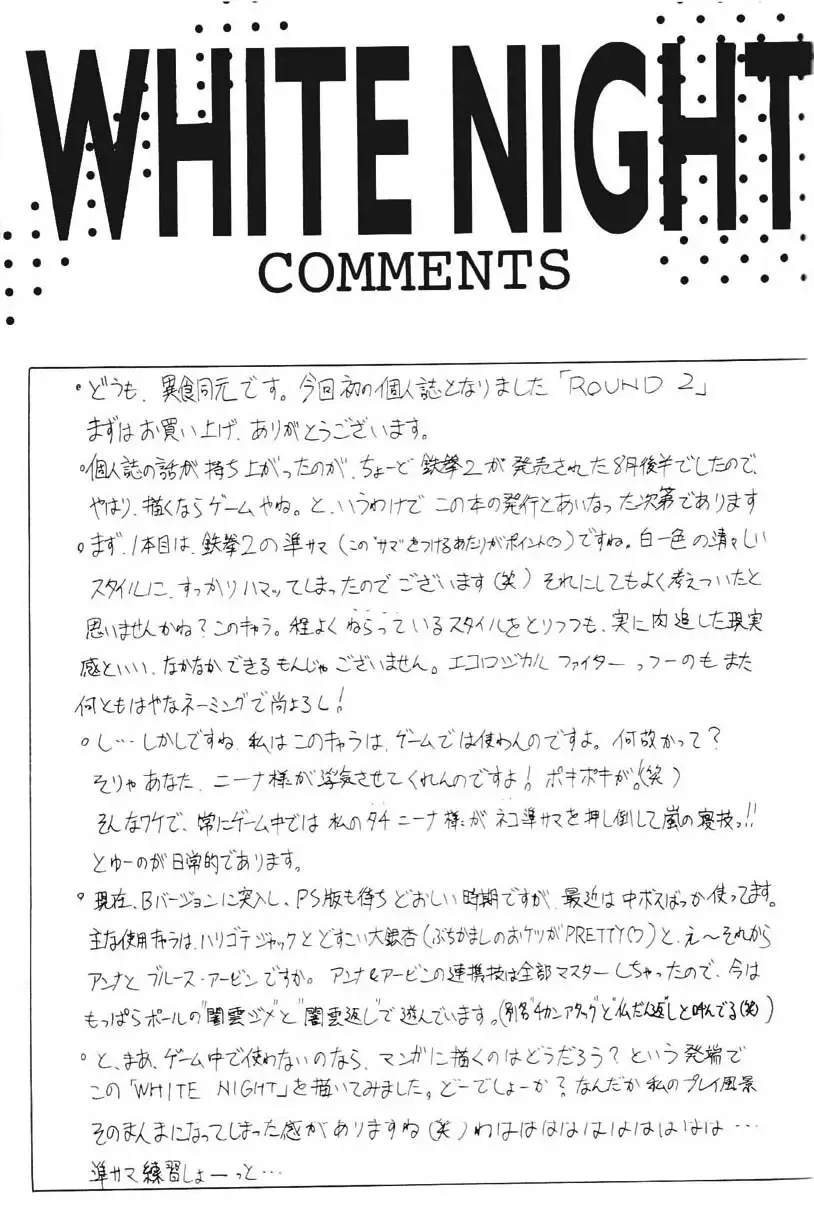 WHITE NIGHT
COMMENTS
• どうも、異食同元です。今回初の個人誌となりました「ROUND 2」
まずはお買い上げ、ありがとうございます。
• 個人誌の話が持ち上がったのが、ちょーど鉄拳2が発売された8月後半でしたので、
やはり、描くならゲームやね。と、いうわけでこの本の発行とあいなった次第であります
• まず、1本目は、鉄拳2の準サマ(この"サマ"をつけるあたりがポイント♡)ですね。白一色の清々しい
スタイルに、すっかりハマッてしまったのでございます(笑)それにしてもよく考えついたと
思いませんかね?このキャラ。程よくねらっているスタイルをとりつつも、実に肉迫した現実
感といい、なかなかできるもんじゃございません。エコロジカルファイターっつーのもまた
何ともはやなネーミングで尚よろし!
• し…しかしですね、私はこのキャラは、ゲームでは使わんのですよ。何故かって?
そりゃあなた、ニーナ様が浮気させてくれんのですよ!ポキポキが。(笑)
そんなワケで、常にゲーム中では私のタチニーナ様がネコ準サマを押し倒して嵐の寝技っ!!
とゆーのが日常的であります。
• 現在、Bバージョンに突入し、PS版も待ちどおしい時期ですが、最近は中ボスばっか使ってます。
主な使用キャラは、ハリゴテジャックとどすこい大銀杏(ぶちかましのおケツがPRETTY♡)と、え〜それから
アンナとブルース・アービンですか。アンナ&アービンの連携技は全部マスターしちゃったので、今は
もっぱらポールの"闇雲ジメ"と"闇雲返し"で遊んでいます。(別名"チカンアタック"と"仏だん返し"と呼んでる(笑))
• と、まあ、ゲーム中で使わないのなら、マンガに描くのはどうだろう?という発端で
この「WHITE NIGHT」を描いてみました。どーでしょーか?なんだか私のプレイ風景
そのまんまになってしまった感がありますね(笑)わはははははははははは…
準サマ練習しょーっと…